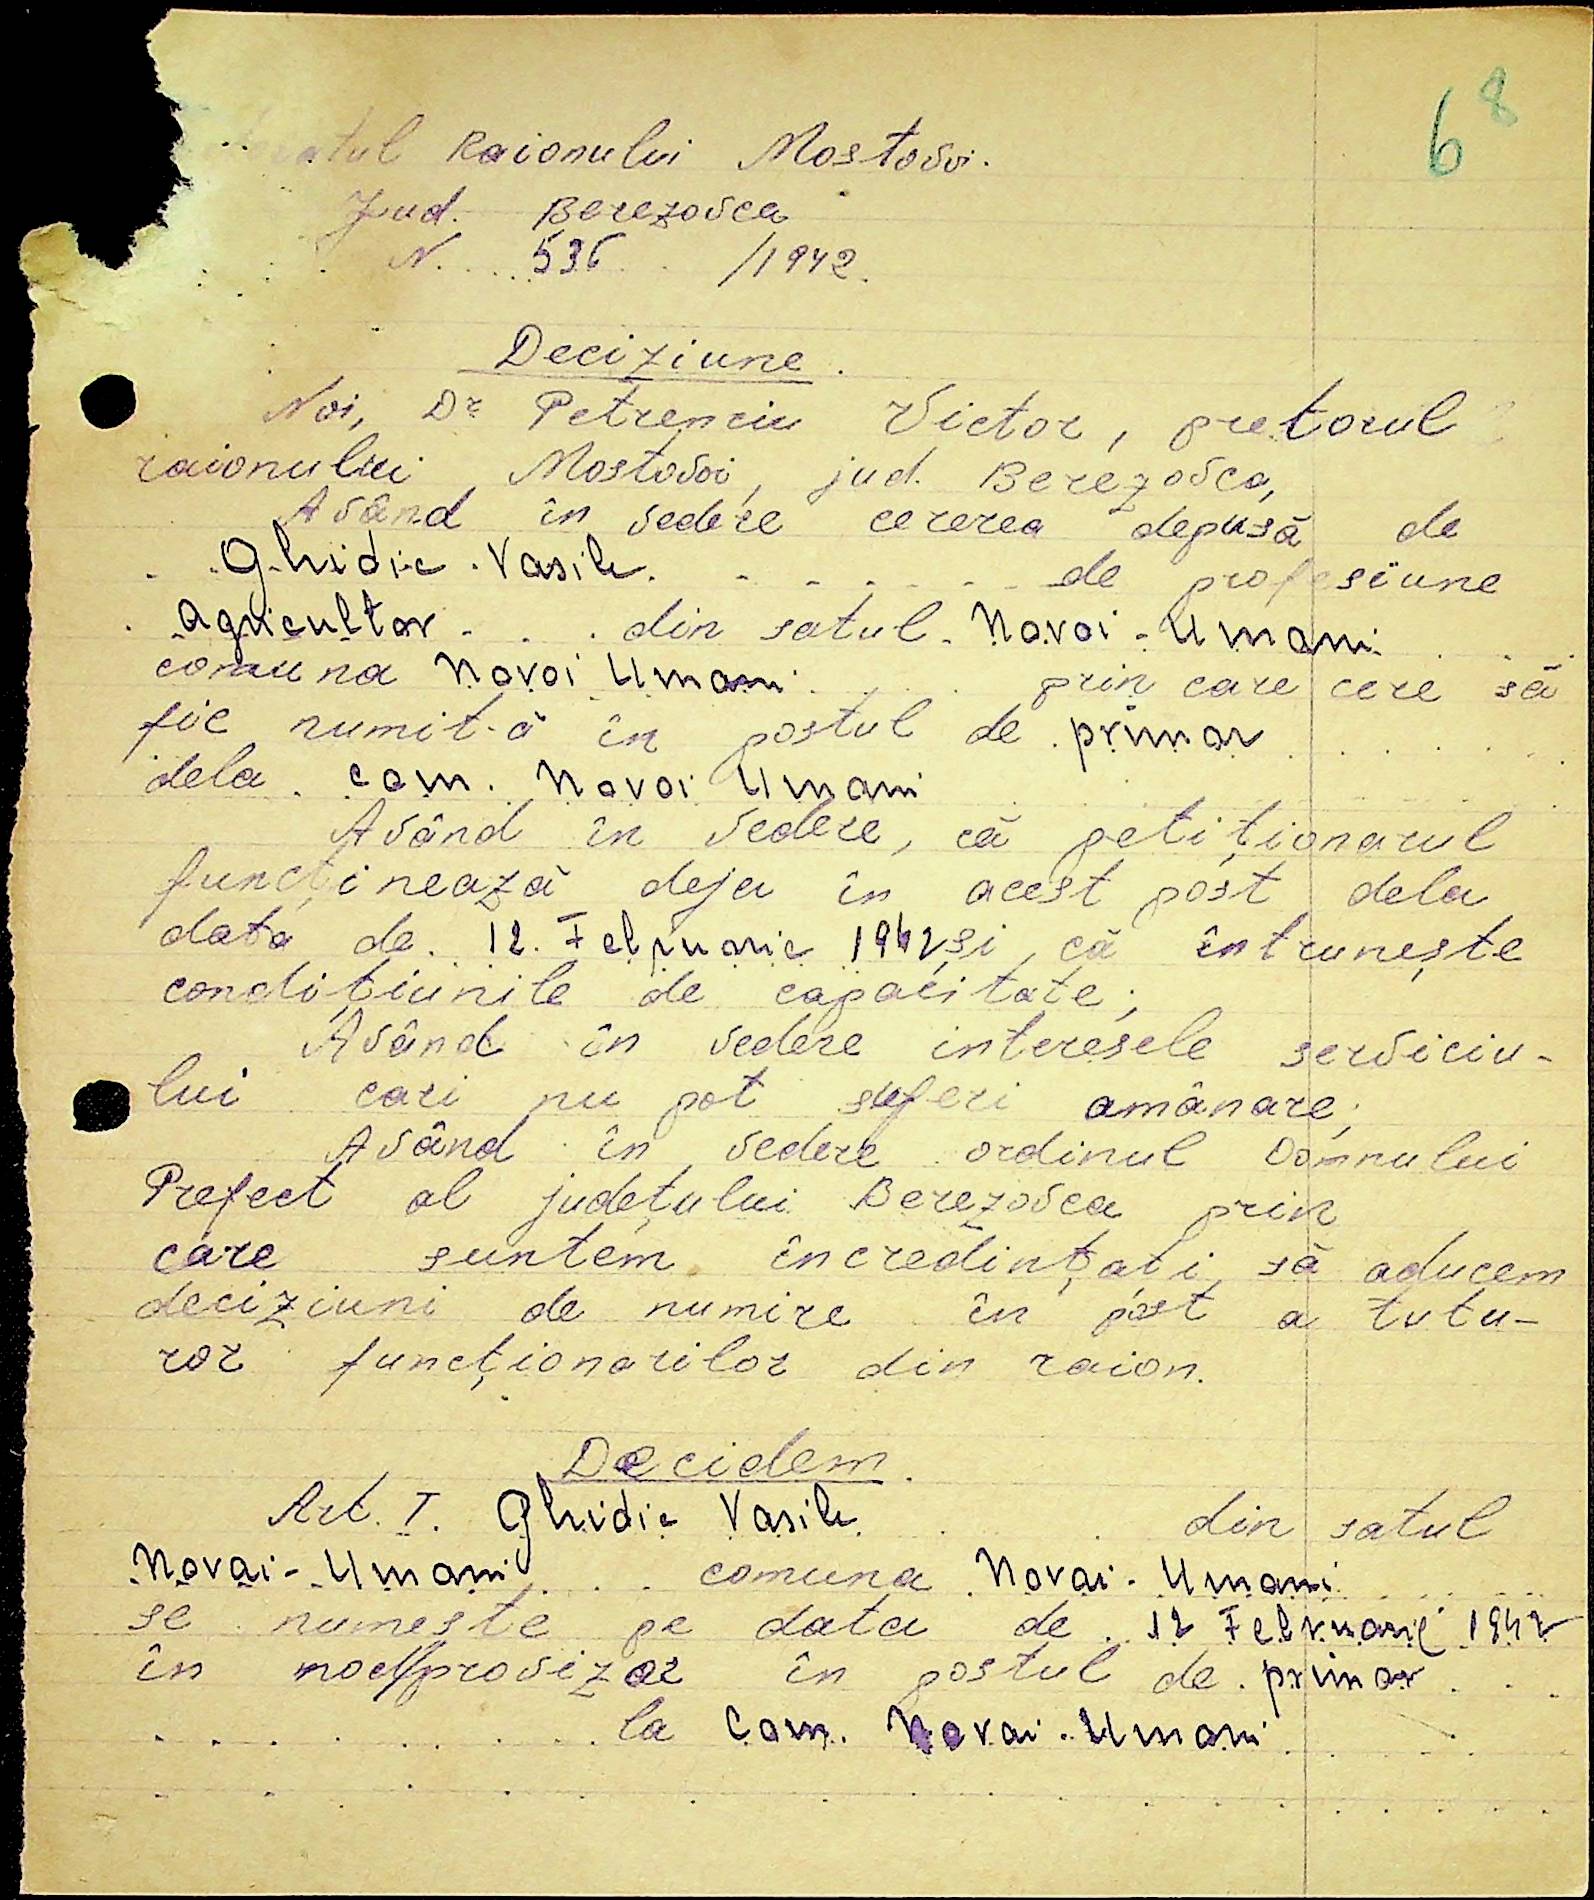 68
Raionului Mostovoi.
Jud. Berezovca
N. 536 /1942.
Deciziune.
Noi, Dr Petrenciu Victor, pretorul
raionului Mostovoi, jud. Berezovca,
Având în vedere cererea depusă de
Ghidic Vasile. de profesiune
agricultor din satul Novoi-Umani
comuna Novoi Umani prin care cere să
fie numit-ă în postul de primar
dela com. Novoi Umani
Având în vedere, că petiționarul
funcținează deja în acest post dela
data de 12. Februarie 1942 și că întrunește
condițiunile de capacitate;
Având în vedere interesele serviciu-
lui cari nu pot suferi amânare;
Având în vedere ordinul Domnului
Prefect al județului Berezovca prin
care suntem încredințați să aducem
deciziuni de numire în post a tutu-
ror funcționarilor din raion.
Decidem.
Art. I. Ghidic Vasile din satul
Novai-Umani comuna Novai-Umani
se numește pe data de 12 Februarie 1942
în mod provizor în postul de primar
la Com. Novai-Umani